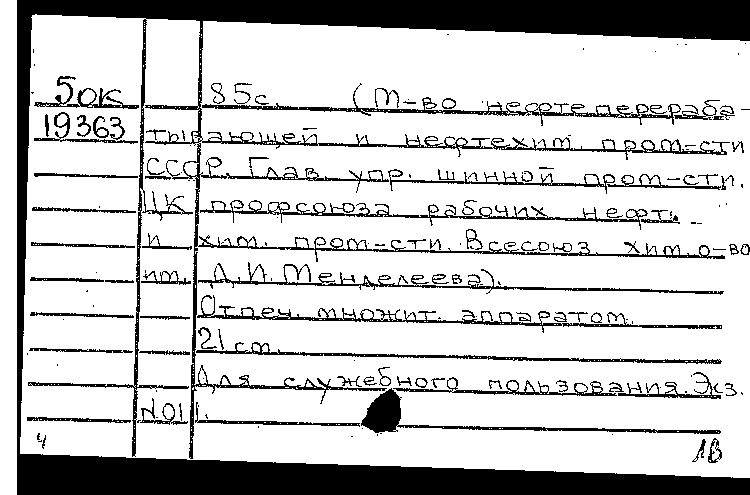 5ок 85с. (М-во нефтеперераба-
19363 тывающей и нефтехим. пром-сти
СССР. Глав. упр. шинной пром-сти.
ЦК профсоюза рабочих нефт. -
и хим. пром-сти. Всесоюз. хим. о-во
им. Д.И. Менделеева).
Отпеч. множит. аппаратом.
21 cm.
Для служебного пользования. Экз.
N011.
4 1В